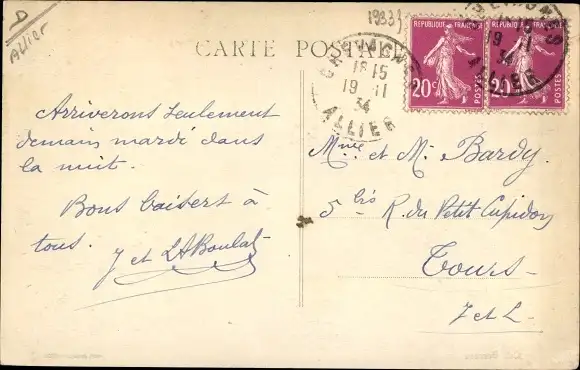 D
Allier
1933
CARTE POSTALE
REPUBLIQUE FRANÇAISE
20c
POSTES
REPUBLIQUE FRANÇAISE
20c
POSTES
18 15
19 11
34
ALLIER
19 11
34
ALLIER
Arriverons seulement
demain mardi dans
la nuit.
Bons baisers à
tous.
J et LABoulat
Mme et M. Bardy.
5 bis R. du Petit Cupidon
Tours -
I et L -